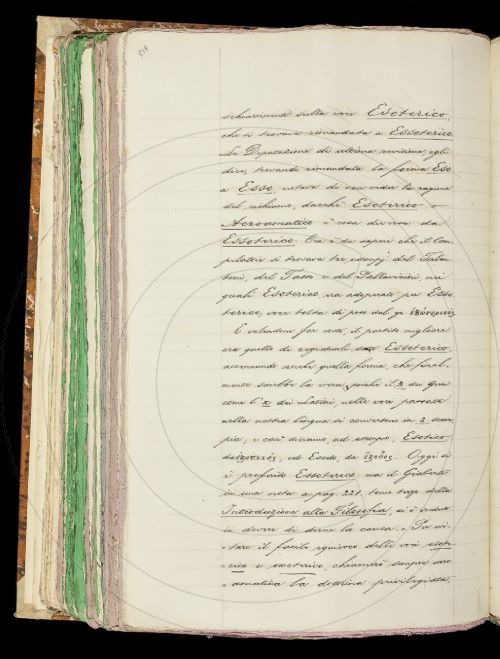 518
schiarimenti sulla voce Esoterico,
che si trovava rimandata a Essoterico.
La Deputazione di ultima revisione, egli
dice, trovando rimandata la forma Eso
a Esso, notava di non veder la ragione
del richiamo, dacchè Esoterico =
Acroamatico è cosa diversa da
Essoterico. Ora è da sapere che il Com-
pilatore si trovava tre esempj del Salvi-
del Tasso e del Pallavicini, nei
quali Esoterico era adoperato per Esso-
terico, voce tolta di peso dal gr. ἐξώτερικός.
E volendone far voce, il partito migliore
era quello di registrarli sotto Essoterico,
accennando anche quella forma, che final-
mente sarebbe la vera, poichè il ξ dei Greci
come l'x dei Latini, nelle voci passate
nella nostra lingua si convertono in s scem-
pia; e così diciamo, ad esempio, Esotico
da ἐξωτικός, ed Esodo, da ἔξοδος. Oggi si
è preferito Essoterico: ma il Gioberti
in una nota a pag. 221 tomo terzo della
Introduzione alla Filosofia, si è creduto
in dovere di dirne la causa. "Per evi-
" tare il facile equivoco delle voci esote-
" rico e exoterico, chiamerò sempre acro-
" amatica la dottrina privilegiata,